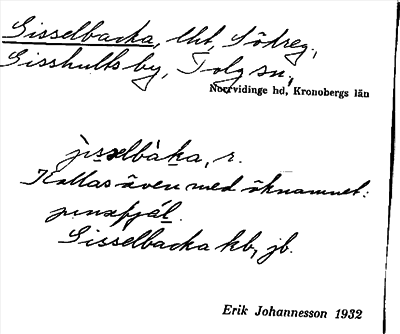 Gisselbacka, lht, Södreg.,
Gisshults by, Tolg sn,
Norrvidinge hd, Kronobergs län
jìsəlbàka, r.
Kallas även med öknamnet:
Gisselbacka hb, jb.
Erik Johannesson 1932